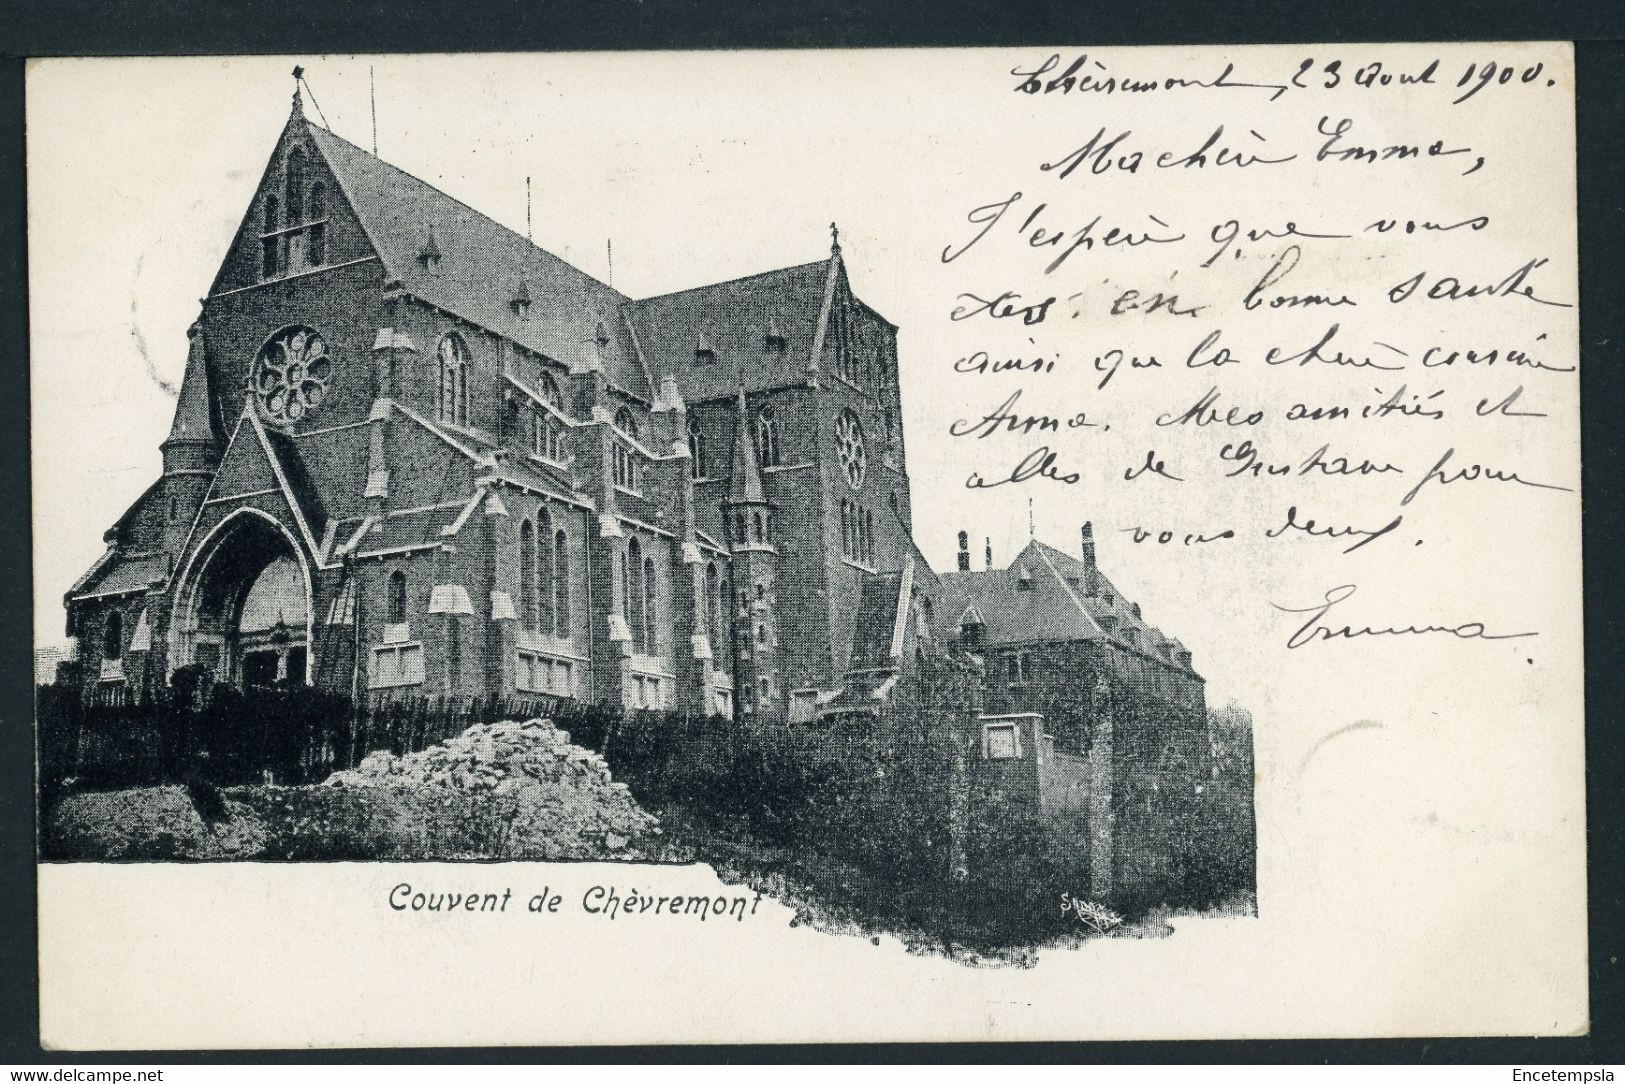 Chèvremont, 23 Aout 1900.
Ma chère Emma,
J'espère que vous
êtes en bonne santé
ainsi que la chère cousine
Anna. Mes amitiés et
celles de Gustave pour
vous deux.
Emma.
Couvent de Chèvremont
www.delcampe.net
Encetempsla